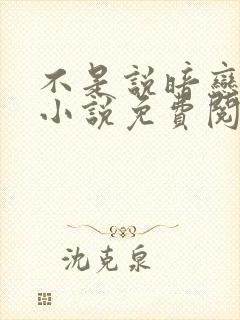 不是說暗戀
小說免費閱
沈克泉